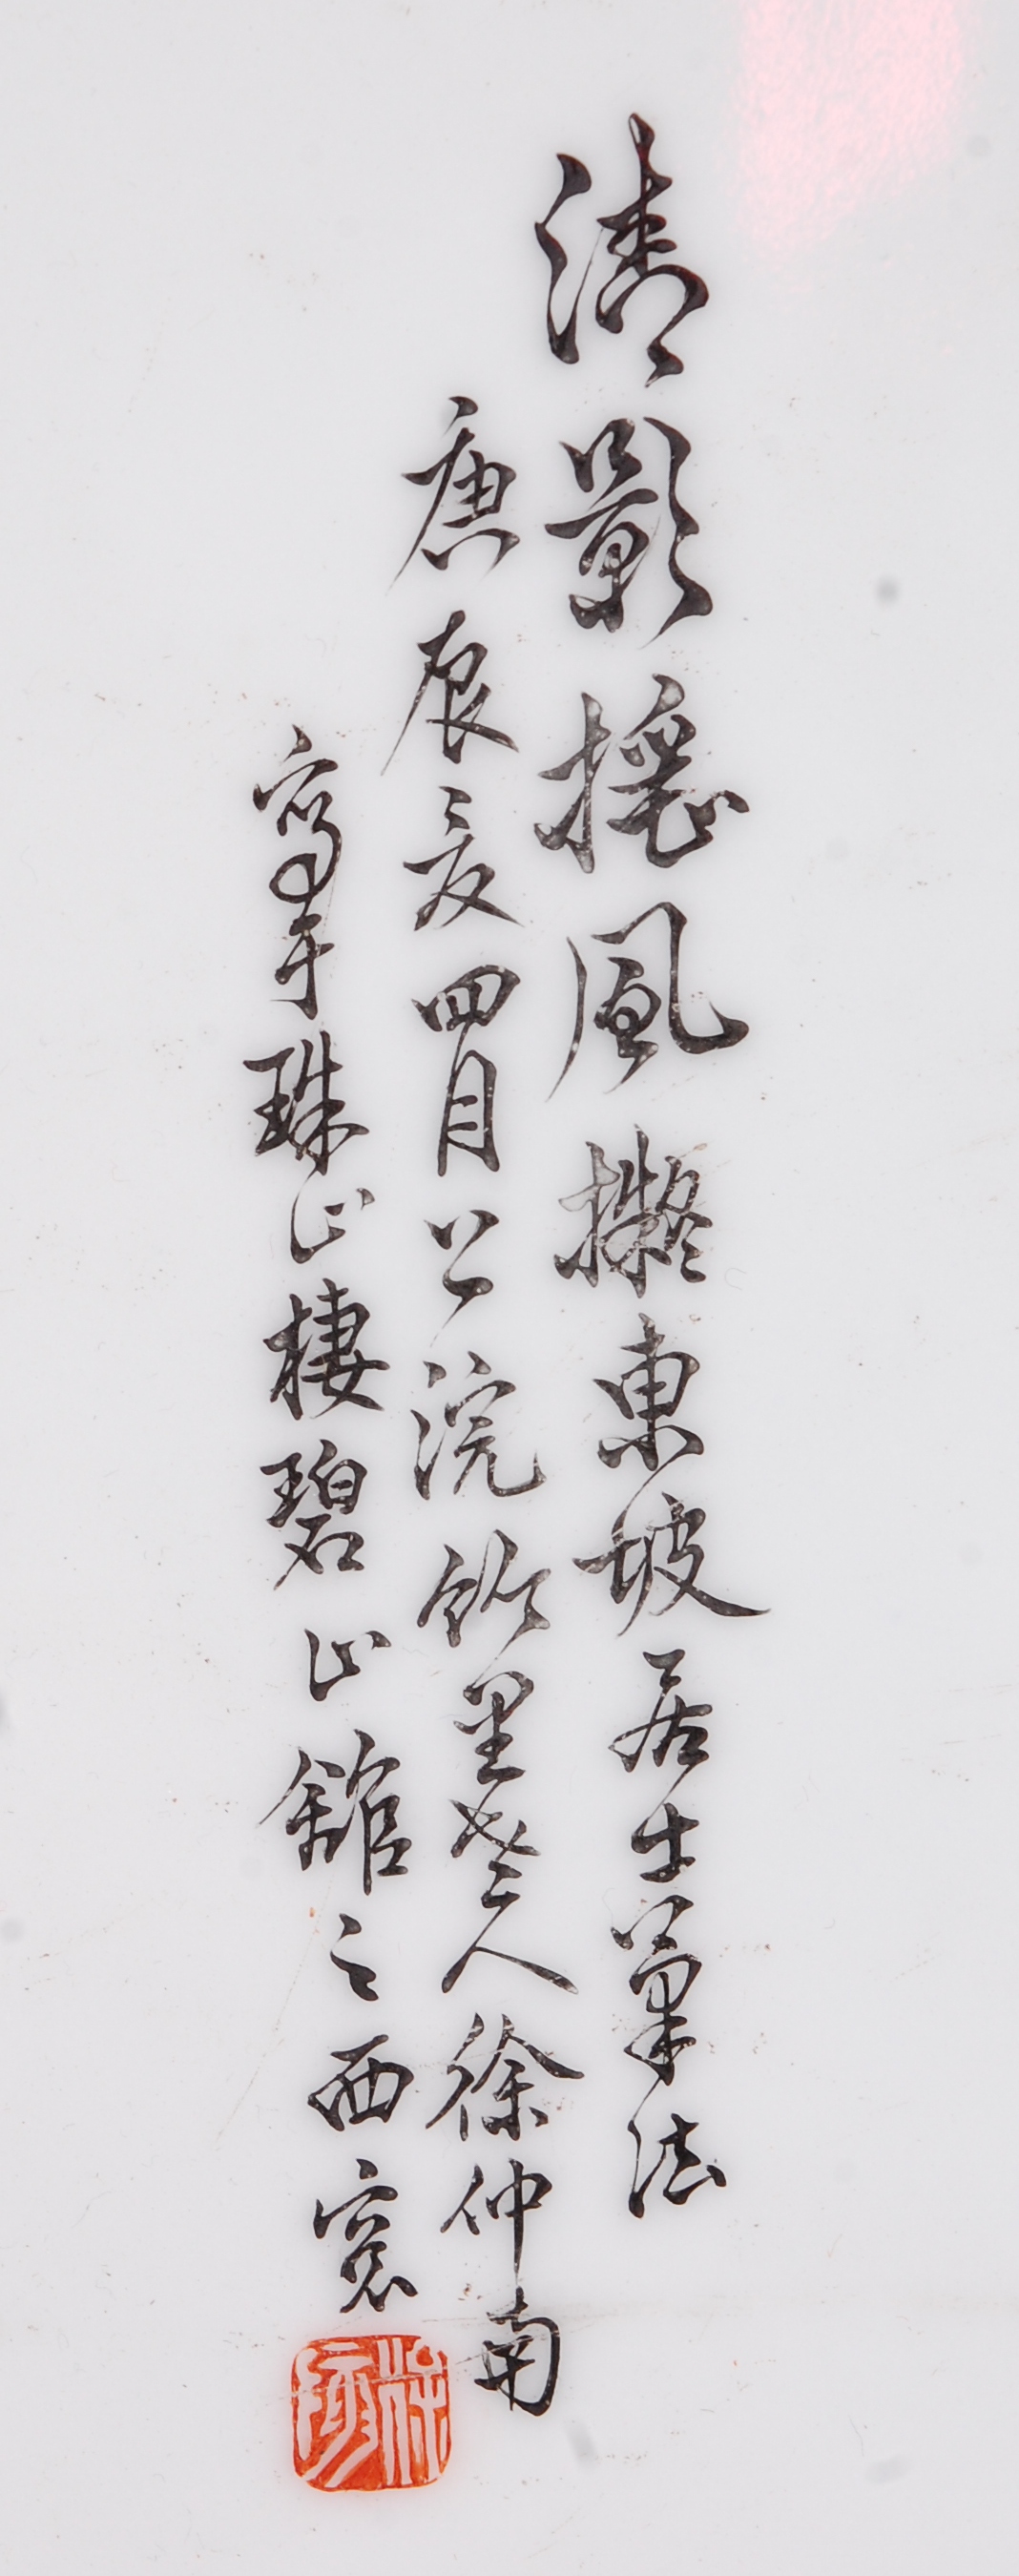 清影搖風擬東坡居士筆法
庚辰夏四月上浣竹里老人徐仲南
寫于珠山棲碧山館之西窗